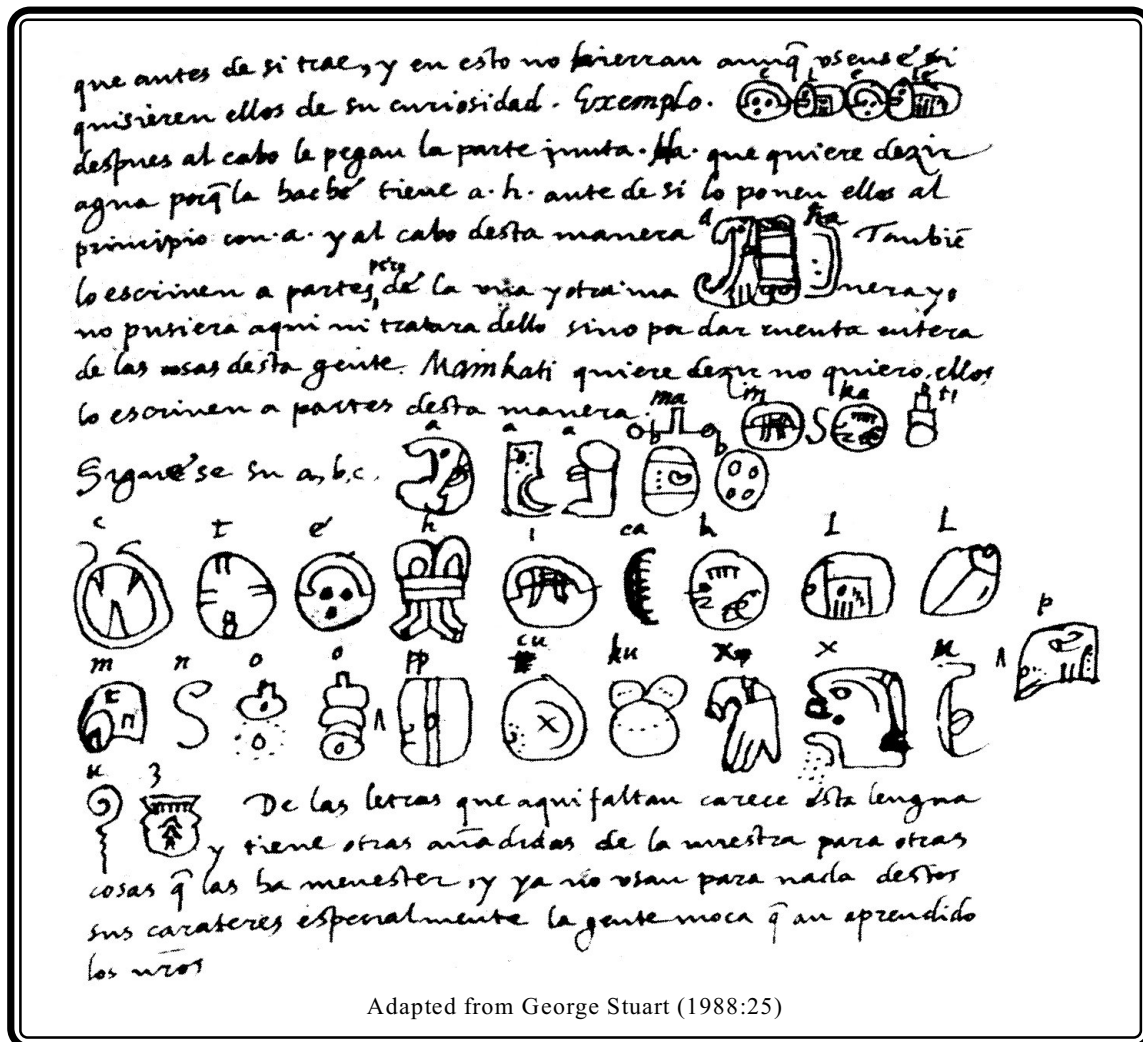 que antes de si trae, y en esto no hierran aunq̄ vsensé si
e L e Le
quisieren ellos de su curiosidad. Exemplo.
despues al cabo le pegan la parte junta. Ha. que quiere dezir
agua porq̄ la haché tiene a. h. ante de si lo ponen ellos al
principio con. a. y al cabo desta manera a ha Tambiē
lo escriven a partes, pero de la vna y otra ma nera yo
no pusiera aqui ni tratara dello sino por dar cuenta entera
de las cosas desta gente. Mainkati quiere dezir no quiero, ellos
lo escriven a partes desta manera. ma in ka ti
Siguese su a, b, c. a a a b b
c t é h i ca k l L
m n o o pp cu ku x x u p
u z De las letras que aqui faltan carece esta lengua
y tiene otras añadidas de la nuestra para otras
cosas q̄ las ha menester, y ya no vsan para nada destos
sus carateres especialmente la gente moça q̄ an aprendido
los nr̄os
Adapted from George Stuart (1988:25)